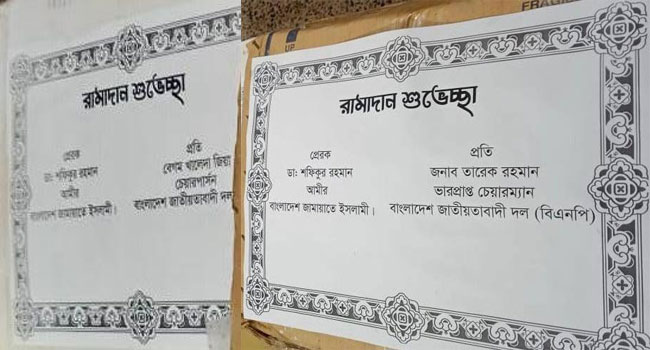 রামাদান শুভেচ্ছা
প্রেরক
ডা: শফিকুর রহমান
আমীর
বাংলাদেশ জামায়াতে ইসলামী।
প্রতি
বেগম খালেদা জিয়া
চেয়ারপার্সন
বাংলাদেশ জাতীয়তাবাদী দল
UP
রামাদান শুভেচ্ছা
প্রেরক
ডা: শফিকুর রহমান
আমীর
বাংলাদেশ জামায়াতে ইসলামী।
প্রতি
জনাব তারেক রহমান
ভারপ্রাপ্ত চেয়ারম্যান
বাংলাদেশ জাতীয়তাবাদী দল (বিএনপি)